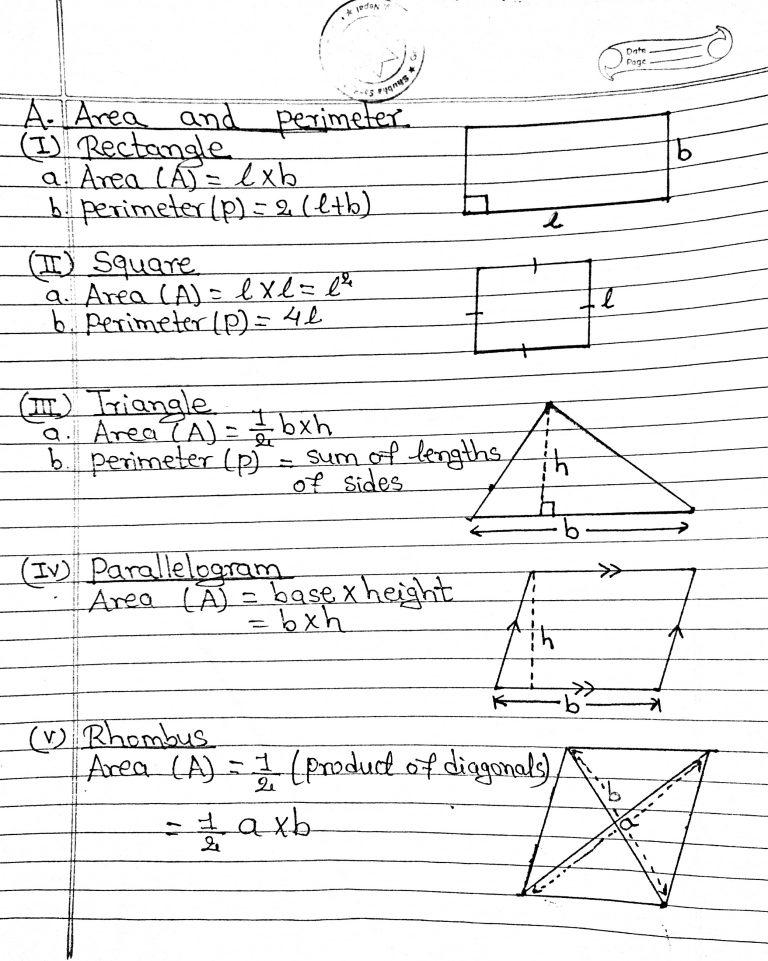 Nepal *
* Shubha
Date
Page
A. Area and perimeter
(I) Rectangle
a. Area (A) = l x b
b. perimeter (p) = 2 (l+b)
b
l
(II) Square
a. Area (A) = l x l = l²
b. perimeter (p) = 4l
l
(III) Triangle
a. Area (A) = 1/2 b x h
b. perimeter (p) = sum of lengths
of sides
h
b
(IV) Parallelogram
Area (A) = base x height
= b x h
h
b
(V) Rhombus
Area (A) = 1/2 (product of diagonals)
= 1/2 a x b
b
a